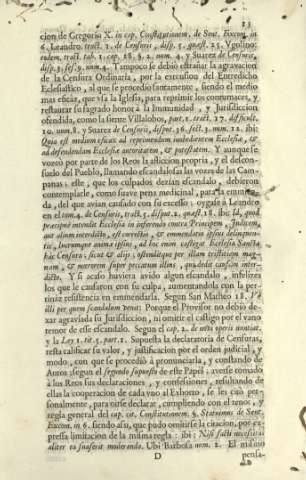 23
cion de Gregorio X. in cap. Constitutionem. de Sent. Excom. in
6. Leandro. tract. 1. de Censuris, disp. 5. quæst. 25. Ygolino:
eodem, tract. tab. 1. cap. 18. §. 2. num. 4. y Suarez de Censuris,
disp. 3. sec. 9. num. 4. Tampoco se debió estrañar la agravacion
de la Censura Ordinaria, por la execusion del Entredicho
Eclesiastico, al que se procedió santamente, siendo el medio
mas eficàz, que vsa la Iglesia, para reprimir los contumaces, y
restaurar su sagrado honor à la Immunidad, y Jurisdiccion
ofendida, como la siente Villalobos, part. 1. tract. 17. difficult.
10. num. 8. y Suarez de Censuris, disput. 36. sect. 3. num. 12. ibi:
Quia est medium eficàx ad reprimendam inobedientem Ecclesiæ, &
ad defendendam Ecclesiæ autoritatem, & potestatem. Y aunque se
vozeó por parte de los Reos la afliccion propria, y el descon-
suelo del Pueblo, llamando escandalosas las vozes de las Cam-
panas: este, que los culpados dezian escandalo, debieron
contemplarle, como suave pena medicinal, para la emmien-
da, del que avian causado con su excesso: oygase à Leandro
en el tom. 4. de Censuris, tract. 5. disput. 2. quæst. 18. ibi: Id, quod
præcipuè intendit Ecclesia in inferendis contra Principem, Judicem,
aut alium interdictis, est correctio, & emmendatio ipsius delinquen-
tis, lucrumque animæ ipsius, ad hoc enim castigat Ecclesia Sancta
hâc Censurâ; sicut & alijs: ostenditque per illam tristitiam mag-
nam, & mœrorem super peccatum illius, quâ
dicto. Y si acaso huviera avido algun escandalo, infelizes
los que le causaron con su culpa, aumentandola con la per-
tinàz resistencia en emmendarla. Segun San Matheo 18. Væ
illi per quem scandalum venit: Porque el Provisor no debió de-
xar agraviada su Jurisdiccion, ni omitir el castigo por el vano
temor de esse escandalo. Segun el cap. 2. de novi operis nuntiat.
y la Ley 1. tit. 5. part. 1. Supuesta la declaratoria de Censuras,
resta calificar su valor, y justificacion por el orden judicial, y
modo, con que se procedió à pronunciarla, y constando de
Autos segun el segundo supuesto de este Papèl; averse tomado
à los Reos sus declaraciones, y confessiones, resultando de
ellas la cooperacion de cada vno al Exhorto, se les citó per-
sonalmente, para oirse declarar, cumpliendo con el tenor, y
regla general del cap. cit. Constitutionem. §. Statuimus de Sent.
Excom. in 6. siendo assi, que pudo omitirse la citacion, por ex-
pressa limitacion de la misma regla: ibi: Nisi facti necessitas
aliter ea suaserit moderanda. Ubi Barbosa num. 2. El mismo
D pensa-